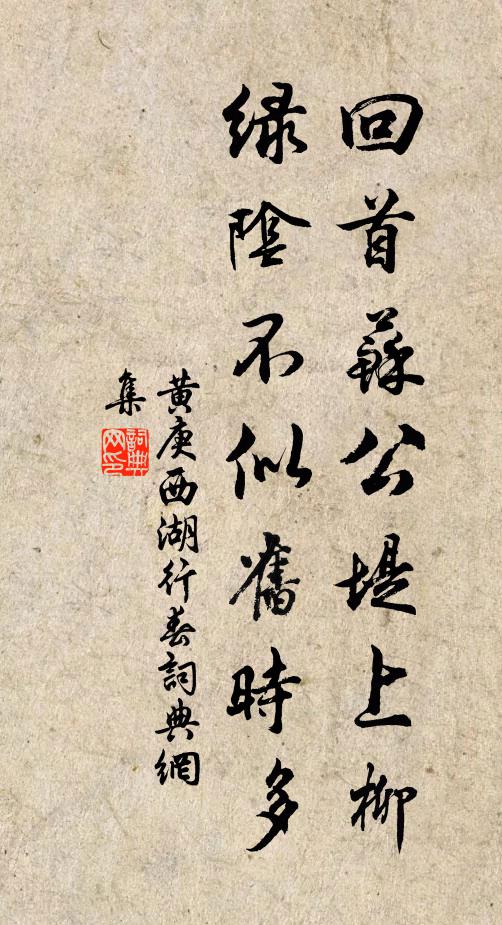 回首蘇公堤上柳
綠陰不似舊時多
黄庚西湖行春詞典網
集
詞典网印